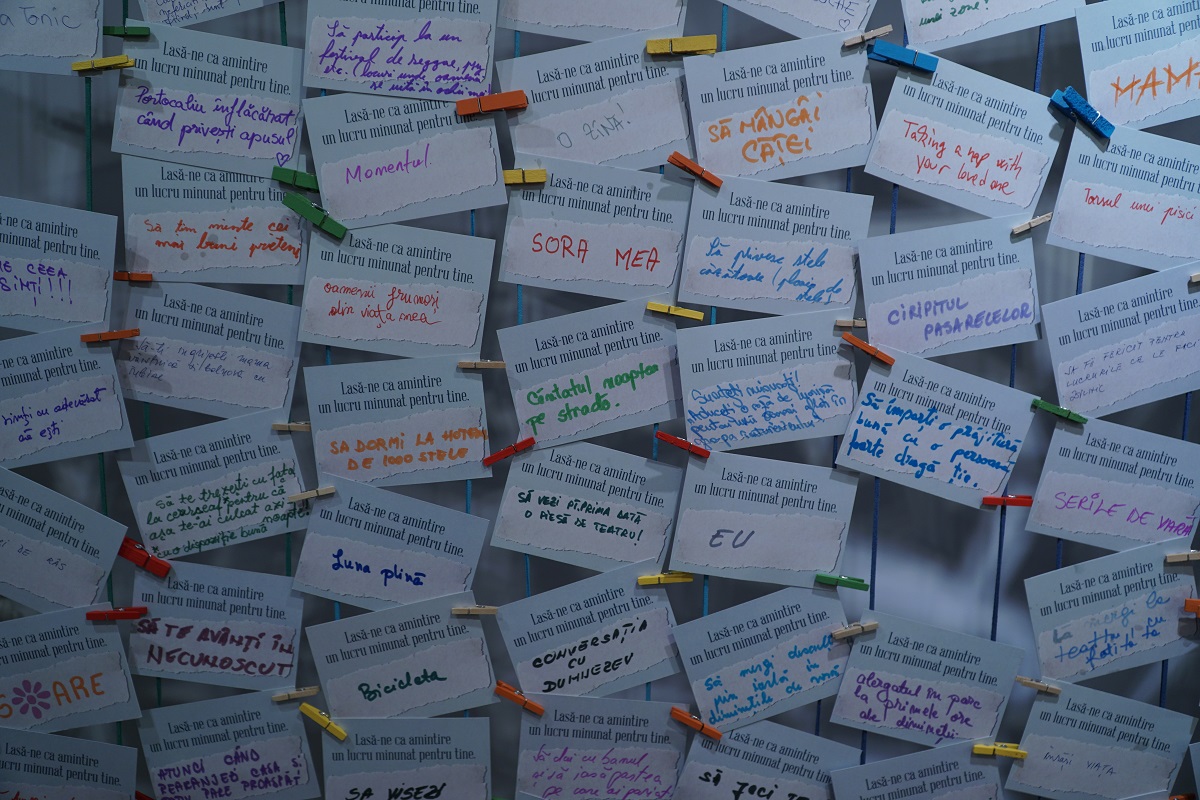 Tonic
Să particip la un
festival de reggae,
etc. (locuri unde oamenii
se uită în ochi
unei zone!
Lasă-ne ca amintire
un lucru minunat pentru tine.
MAM
Lasă-ne ca amintire
un lucru minunat pentru tine.
Portocaliu înflăcărat
când privești apusul
Lasă-ne ca amintire
un lucru minunat pentru tine.
Momentul.
Lasă-ne ca amintire
un lucru minunat pentru tine.
O ZINA!
Lasă-ne ca amintire
un lucru minunat pentru tine.
SĂ MÂNGÂI
CĂȚEI
Lasă-ne ca amintire
un lucru minunat pentru tine.
Taking a nap with
your loved one
Lasă-ne ca amintire
un lucru minunat pentru tine.
Torsul unei pisici
Lasă-ne ca amintire
un lucru minunat pentru tine.
Să țin minte cei
mai buni prieteni
Lasă-ne ca amintire
un lucru minunat pentru tine.
oamenii frumoși
din viața mea
Lasă-ne ca amintire
un lucru minunat pentru tine.
SORA MEA
Lasă-ne ca amintire
un lucru minunat pentru tine.
Să privesc stele
căzătoare (ploaie de
stele)
Lasă-ne ca amintire
un lucru minunat pentru tine.
CIRIPITUL
PASARELELOR
Lasă-ne ca amintire
un lucru minunat pentru tine.
SĂ TE FERICIT PENTRU
LUCRURILE CE LE FACI
ZILNIC
amintire
pentru tine.
CEEA
SIMȚI!!!
Lasă-ne ca amintire
un lucru minunat pentru tine.
Lasă-ne ca amintire
un lucru minunat pentru tine.
SA DORMI LA HOTELU
DE 1000 STELE
Lasă-ne ca amintire
un lucru minunat pentru tine.
Cântatul noaptea
pe stradă.
Lasă-ne ca amintire
un lucru minunat pentru tine.
Sunteți minunați!
Lasă-ne ca amintire
un lucru minunat pentru tine.
Să împarți o prăjitură
bună cu o persoană
foarte dragă ție.
Lasă-ne ca amintire
un lucru minunat pentru tine.
SERILE DE VARĂ
ca amintire
minunat pentru tine.
simți cu adevărat
că ești
Lasă-ne ca amintire
un lucru minunat pentru tine.
Să te trezești cu fața
la cearșaf pentru că
așa te-ai culcat azi
noapte
dispoziție bună
Lasă-ne ca amintire
un lucru minunat pentru tine.
Luna plină
Lasă-ne ca amintire
un lucru minunat pentru tine.
SĂ VEZI PT. PRIMA DATĂ
O PIESĂ DE TEATRU!
Lasă-ne ca amintire
un lucru minunat pentru tine.
EU
Lasă-ne ca amintire
un lucru minunat pentru tine.
merg la
teatru cu
fetița
ca amintire
minunat pentru tine.
DE RÂS
Lasă-ne ca amintire
un lucru minunat pentru tine.
SĂ TE AVÂNȚI ÎN
NECUNOSCUT
Lasă-ne ca amintire
un lucru minunat pentru tine.
Bicicleta
Lasă-ne ca amintire
un lucru minunat pentru tine.
CONVERSAȚIA
CU
DUMNEZEU
Lasă-ne ca amintire
un lucru minunat pentru tine.
Să mergi desculț
prin iarbă în
diminețile de vară
Lasă-ne ca amintire
un lucru minunat pentru tine.
alergatul în parc
la primele ore
ale dimineții
Lasă-ne ca amintire
un lucru minunat pentru tine.
VIAȚA
Lasă-ne ca amintire
un lucru minunat pentru tine.
SOARE
Lasă-ne ca amintire
un lucru minunat pentru tine.
ATUNCI CÂND
REARANJEZ CASA ȘI
Lasă-ne ca amintire
un lucru minunat pentru tine.
SA VISEZI
Lasă-ne ca amintire
un lucru minunat pentru tine.
Să dai cu banul
și să iasă partea
pe care ai pariat
Lasă-ne ca amintire
un lucru minunat pentru tine.
SĂ FACI
Lasă-ne ca amintire
un lucru minunat pentru tine.
Lasă-ne ca amintire
un lucru minunat pentru tine.